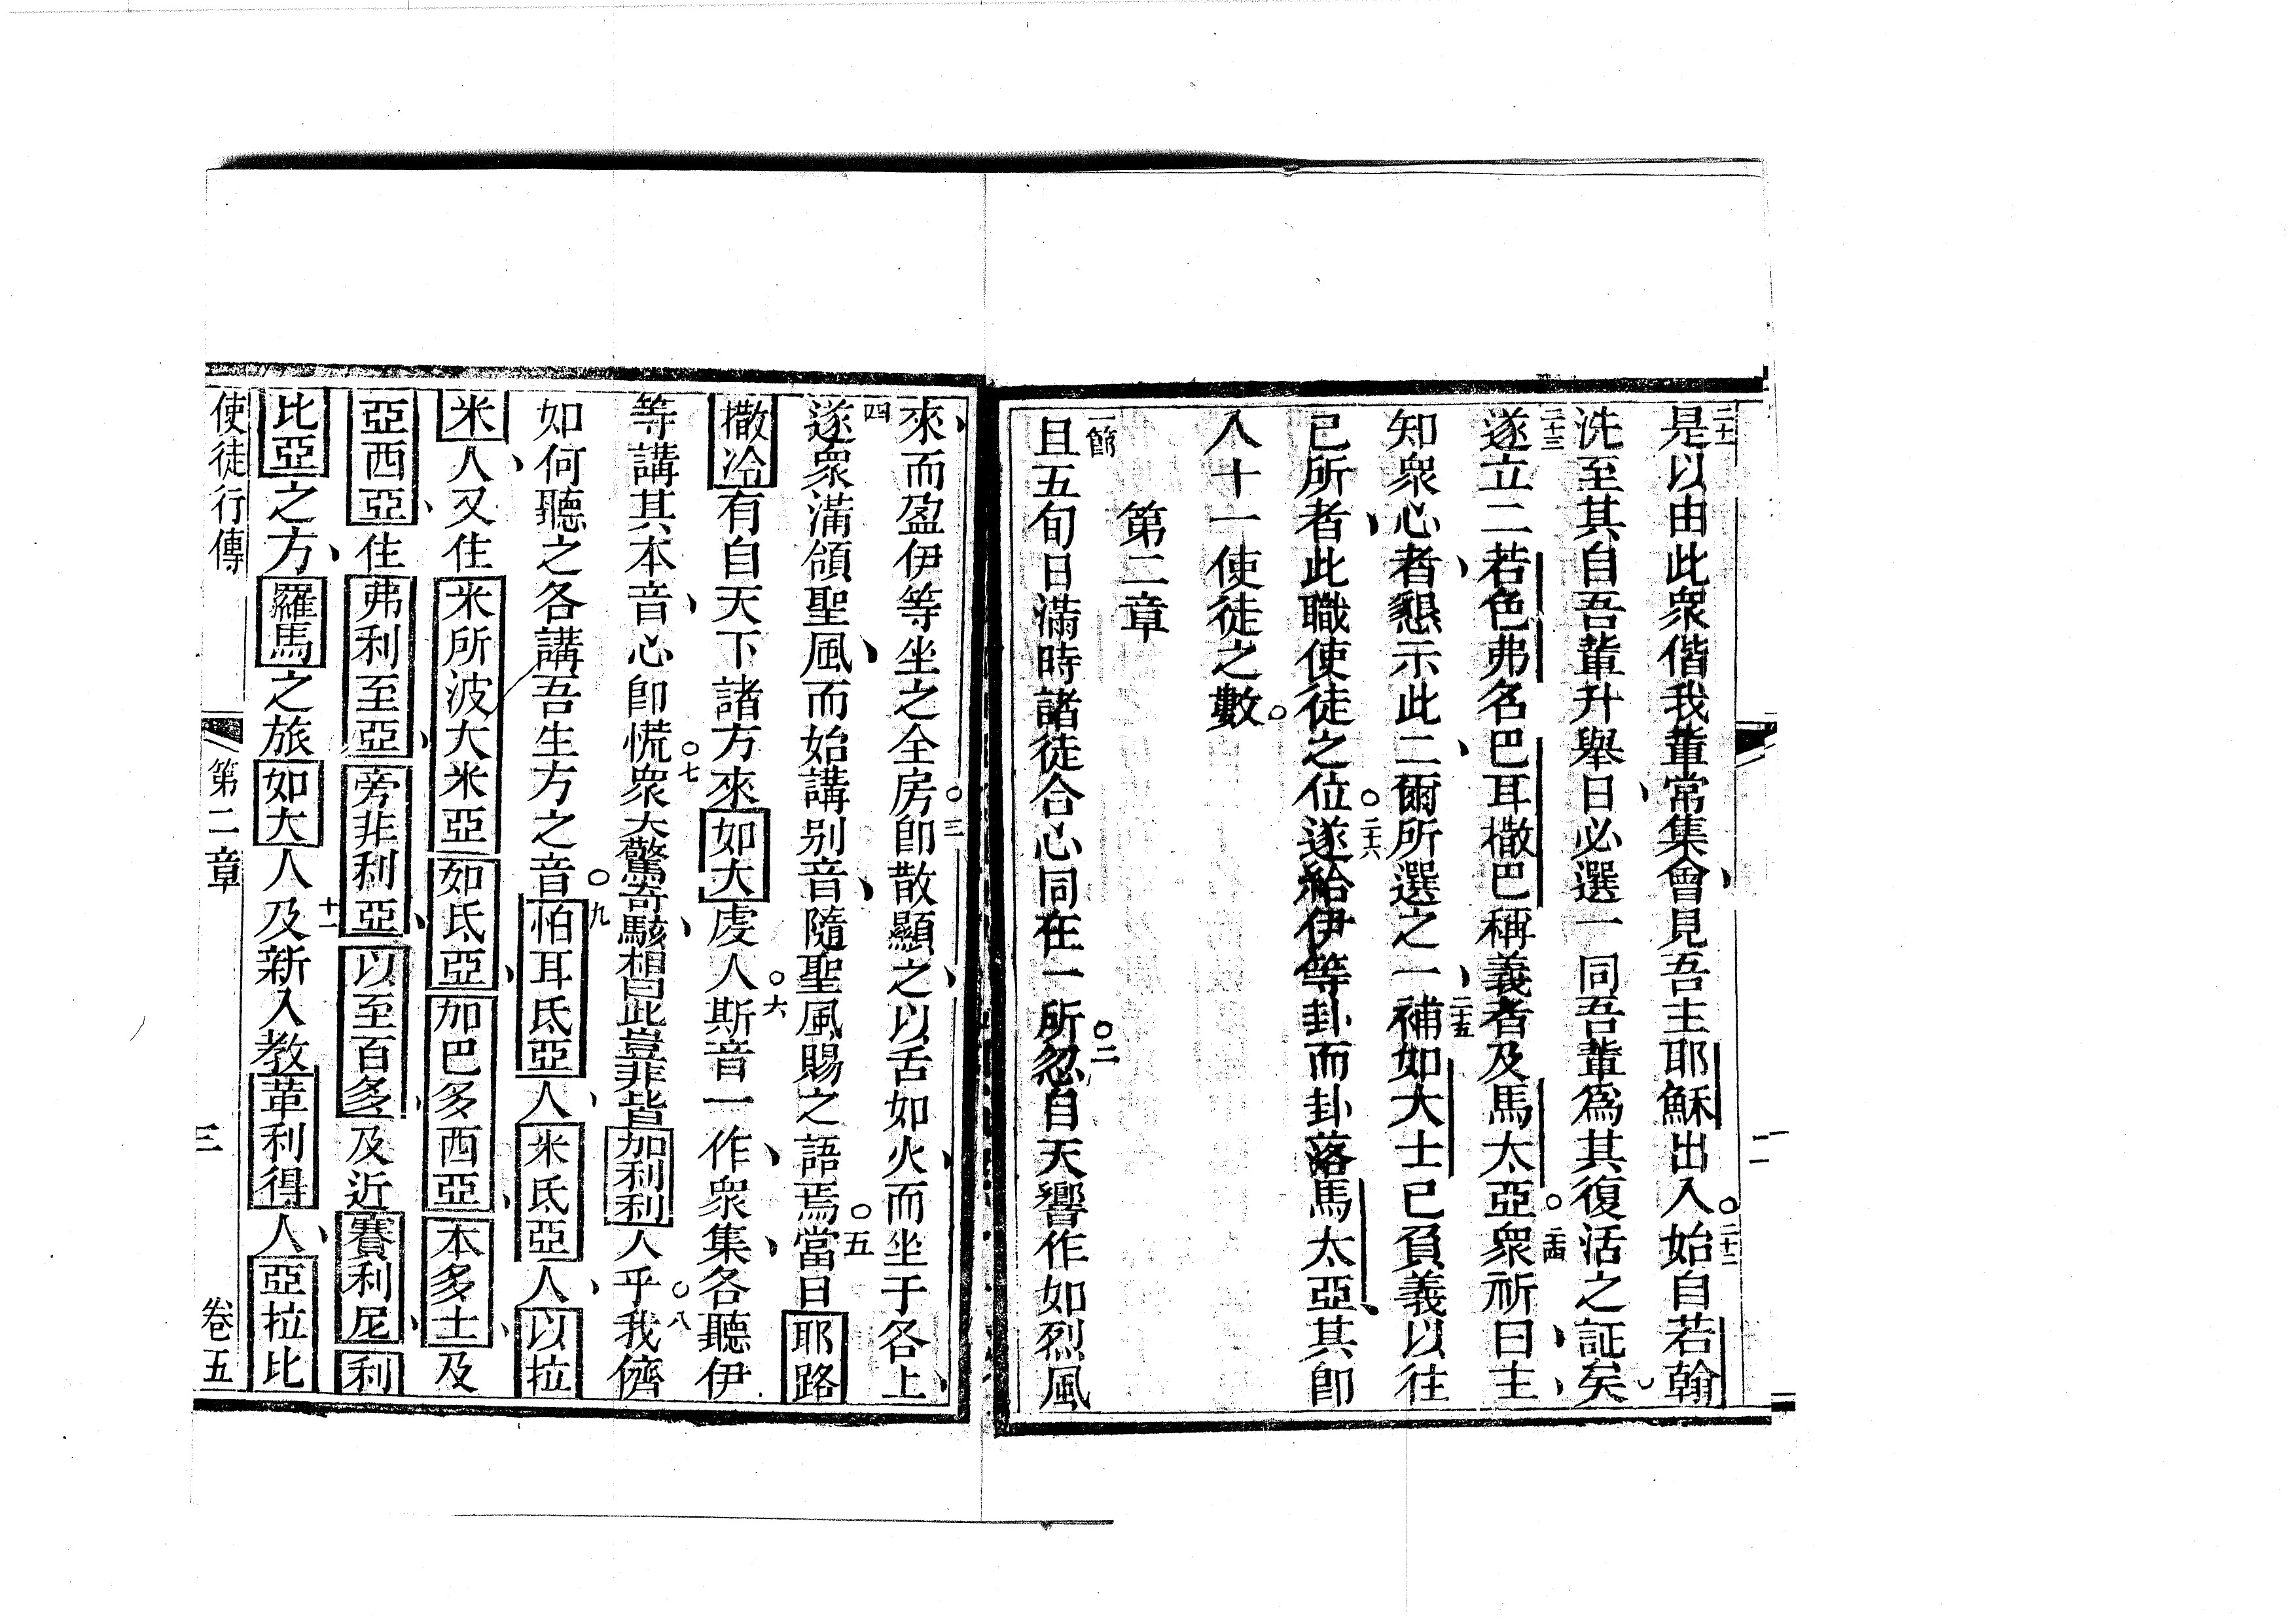 二十一是以由此衆偕我輩常集會見吾主耶穌出入。二十二始自若翰
洗至其自吾輩升舉日必選一同吾輩為其復活之証矣
二十三遂立二若色弗名巴耳撒巴稱義者及馬太亞。二十四衆祈曰主
知衆心者懇示此二爾所選之一二十五補如大士已負義以往
己所者此職使徒之位。二十六遂給伊等卦而卦落馬太亞其即
入十一使徒之數。
第二章
一節且五旬日滿時諸徒合心同在一所。二忽自天響作如烈風
來而盈伊等坐之全房。三即散顯之以舌如火而坐于各上
四遂衆滿領聖風而始講別音隨聖風賜之語焉。五當日耶路
撒冷有自天下諸方來如大虔人。六斯音一作衆集各聽伊
等講其本音心即慌。七衆大驚奇駭相曰此豈非皆加利利人乎。八我儕
如何聽之各講吾生方之音。九怕耳氐亞人米氐亞人以拉
米人又住米所波大米亞如氐亞加巴多西亞本多士及
亞西亞住弗利至亞旁非利亞以至百多及近賽利尼利
比亞之方羅馬之旅如大人十一及新入教革利得人亞拉比
使徒行傳 第二章 三 卷五